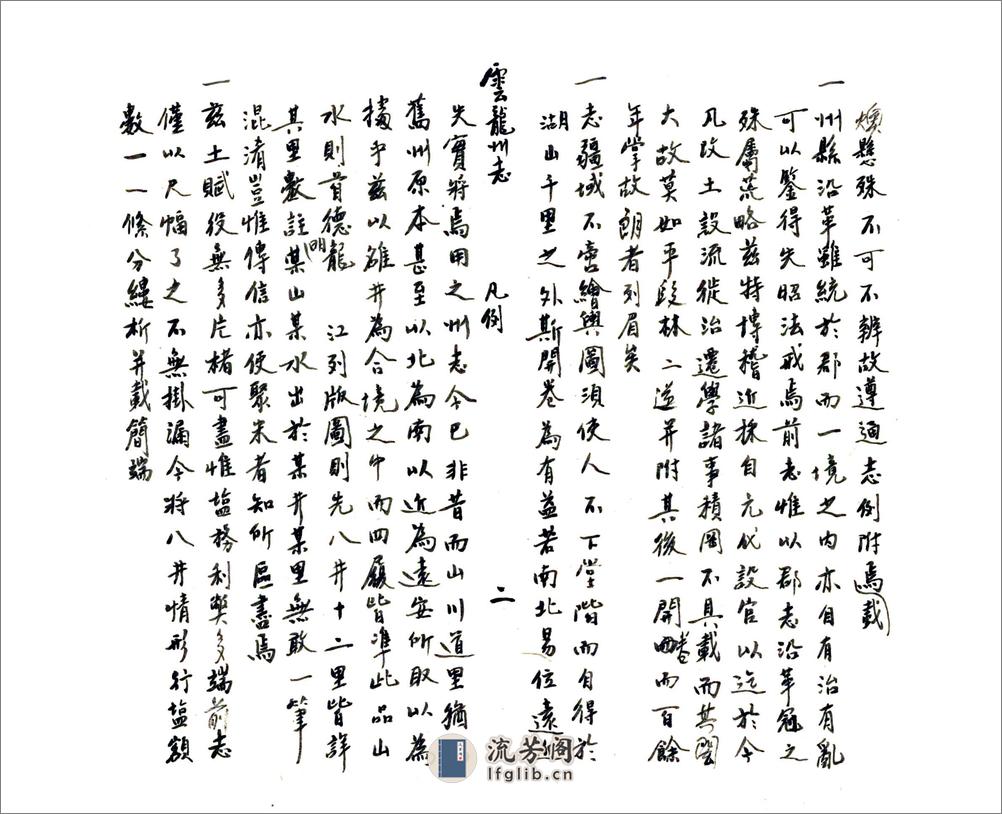 煥懸殊不可不辨故遵通志例附焉載
一州縣沿革雖統於郡而一境之內亦自有治有亂
可以鑒得失昭法戒焉前志惟以郡志沿革冠之
殊屬荒略茲特博稽近採自元代設官以迄於今
凡改土設流徙治遷學諸事積罔不具載而其間
大故莫如平段林二逆并附其後一開卷而百餘
年掌故朗若列眉矣
一志疆域不啻繪輿圖須使人不下堂階而自得於
湖山千里之外斯開卷為有益若南北易位遠近
雲龍州志 凡例 二
失實將焉用之州志今已非昔而山川道里猶
舊州原本甚至以北為南以近為遠安所取以為
據乎茲以雒井為合境之中而四履皆準此品山
水則首德龍 江列版圖則先八井十二里皆詳
其里數註明某山某水出於某井某里無敢一筆
混淆豈惟傳信亦使聚米者知所區畫焉
一茲土賦役無多片楮可盡惟塩務利弊多端前志
僅以尺幅了之不無掛漏今將八井情形行塩額
數一一條分縷析并載簡端
流芳阁
lfglib.cn